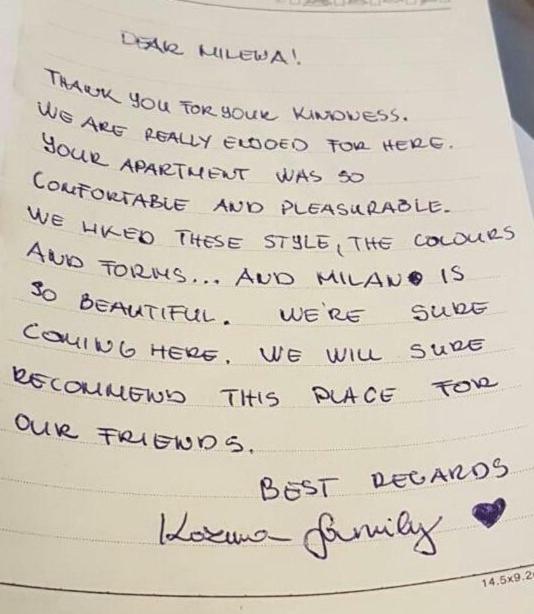 DEAR MILENA!
THANK YOU FOR YOUR KINDNESS.
WE ARE REALLY ENJOED FOR HERE.
YOUR APARTMENT WAS SO
COMFORTABLE AND PLEASURABLE.
WE LIKED THESE STYLE, THE COLOURS
AND FORMS... AND MILANO IS
SO BEAUTIFUL. WE'RE SURE
COMING HERE. WE WILL SURE
RECOMMEND THIS PLACE FOR
OUR FRIENDS.
BEST REGARDS
Kozma family